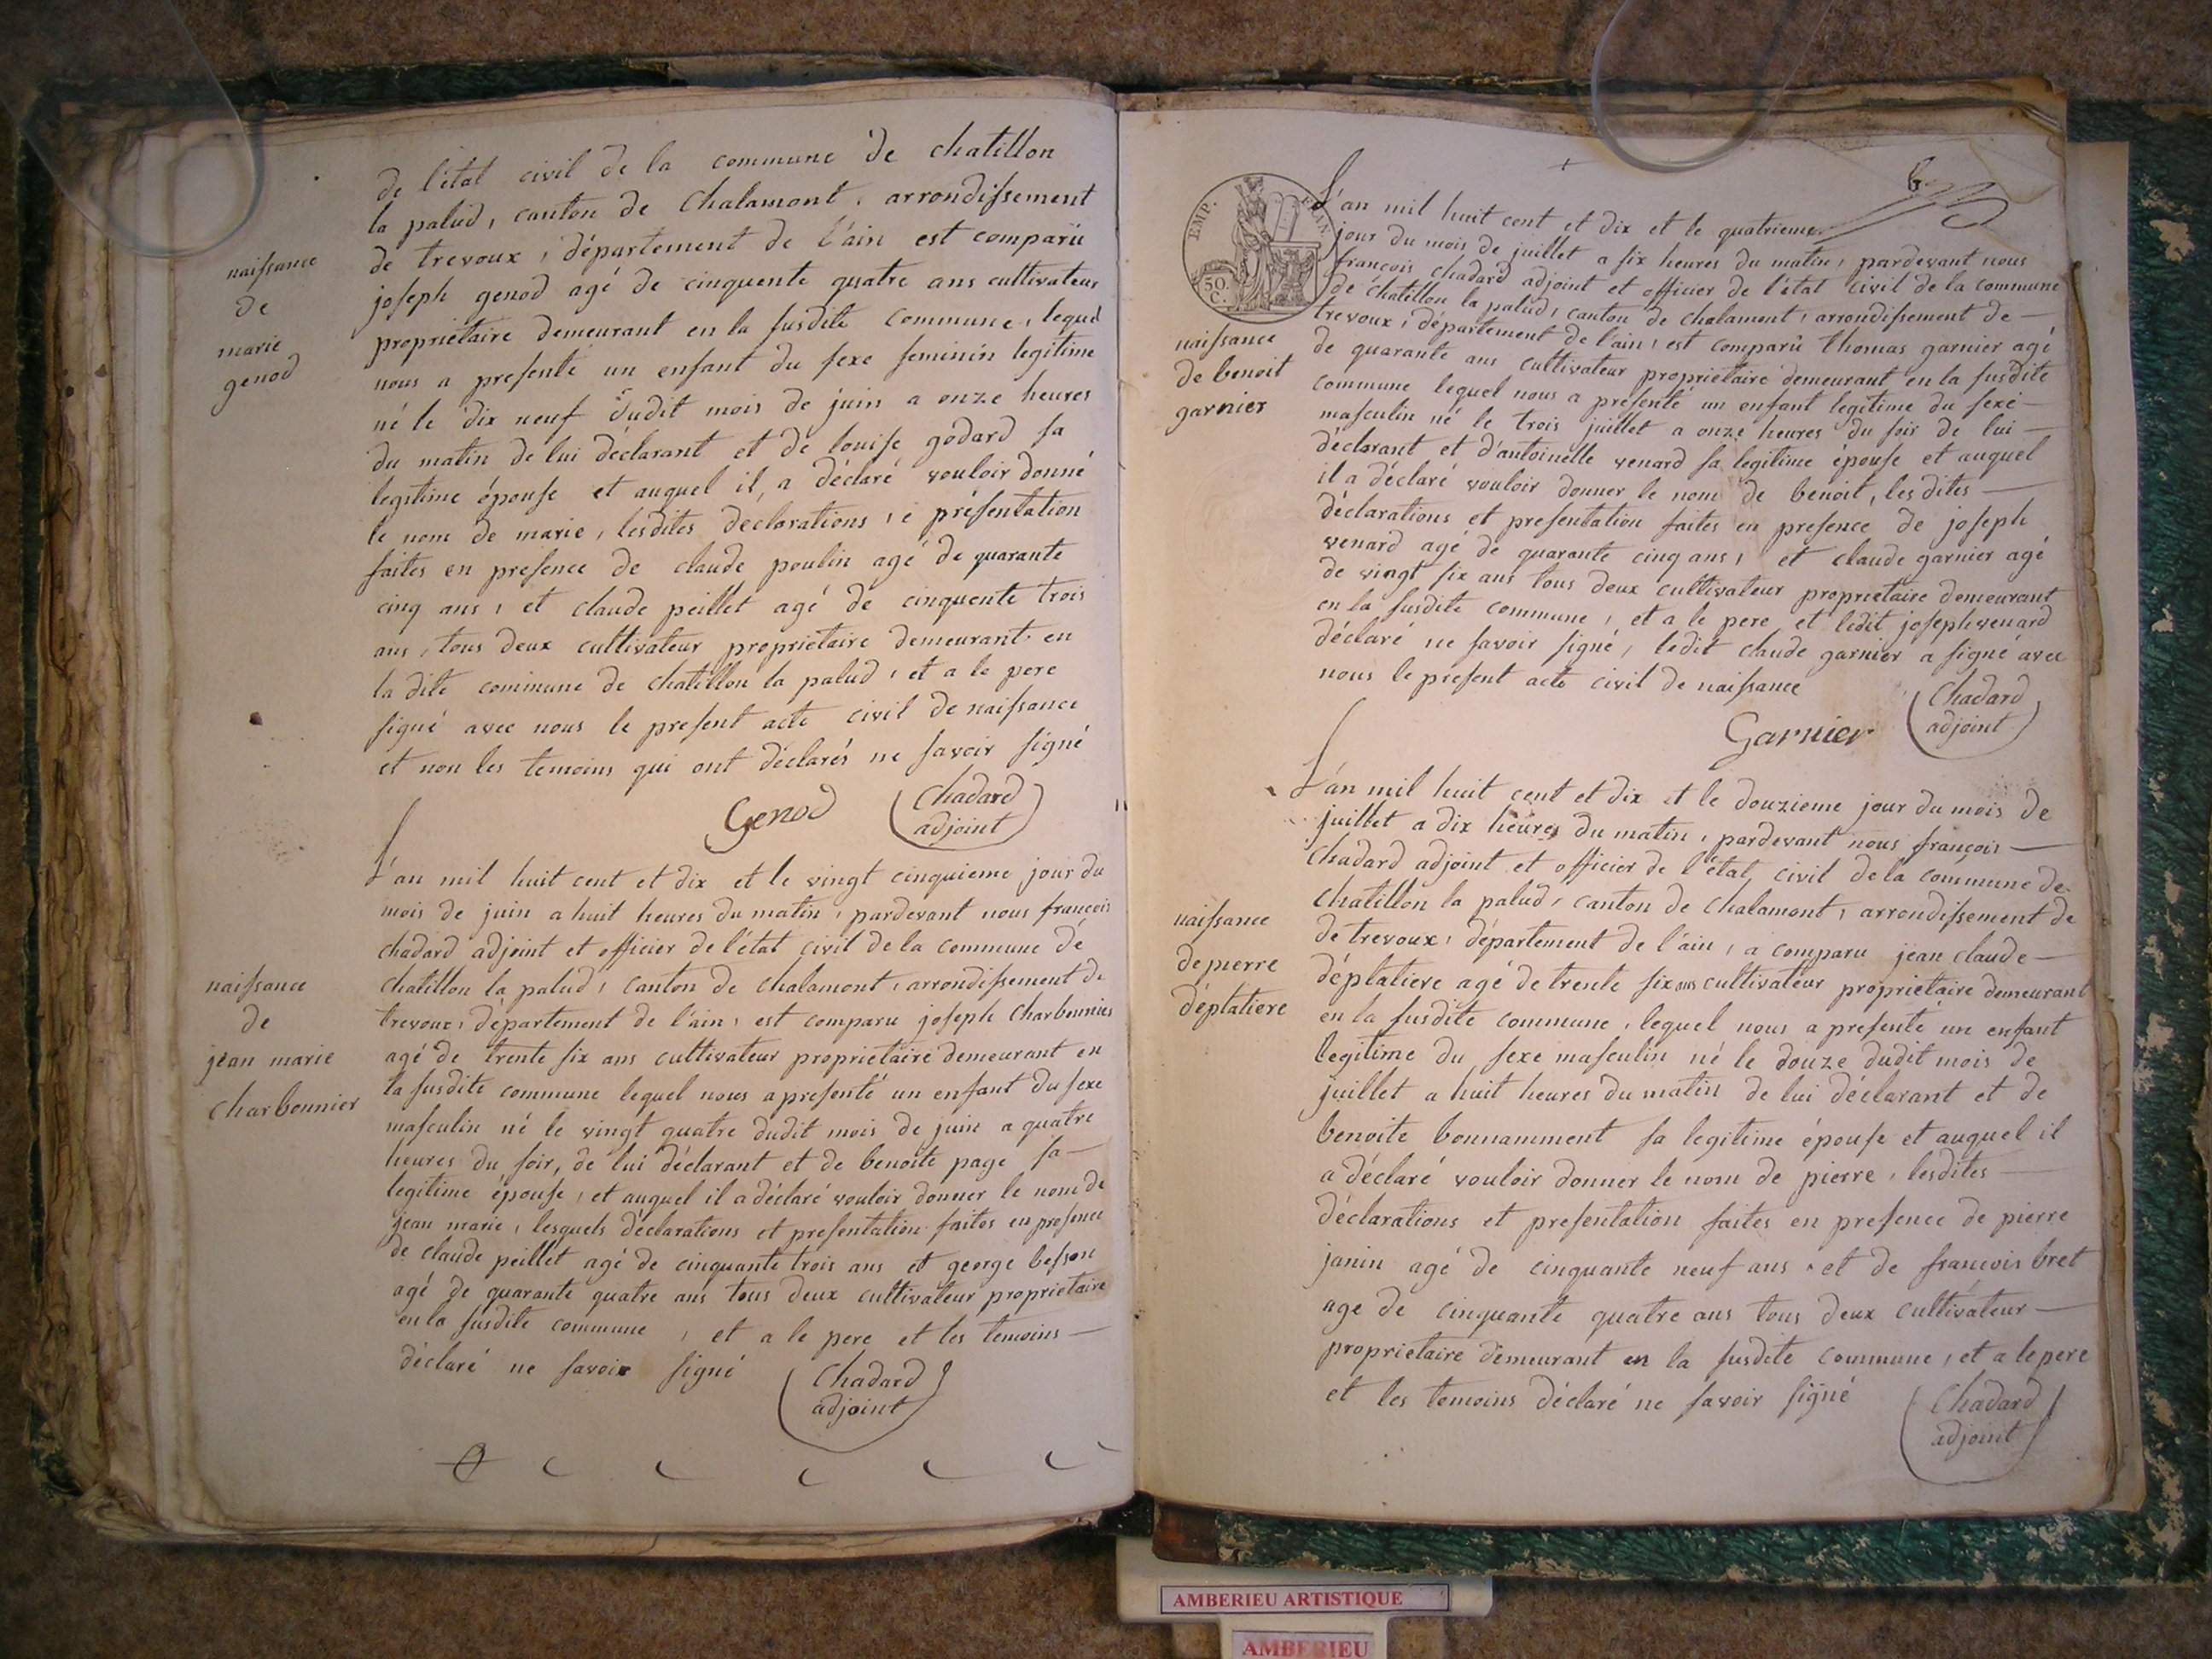 de l'état civil de la commune de chatillon
la palud, canton de Chalamont, arrondissement
de trevoux, département de l'ain est comparu
joseph genod agé de cinquente quatre ans cultivateur
proprietaire demeurant en la susdite commune, lequel
nous a presenté un enfant du sexe feminin legitime
né le dix neuf dudit mois de juin a onze heures
du matin de lui déclarant et de louise godard sa
legitime épouse et auquel il, a déclaré vouloir donné
le nom de marie, lesdites declarations, é présentation
faites en presence de claude poulin agé de quarante
cinq ans, et claude peillet agé de cinquente trois
ans, tous deux cultivateur proprietaire demeurant en
la dite commune de chatillon la palud, et a le pere
signé avec nous le present acte civil de naissance
et non les temoins qui ont déclarés ne savoir signé
naissance
de
marie
genod
Genod
Chadard
adjoint
L'an mil huit cent et dix et le vingt cinquieme jour du
mois de juin a huit heures du matin, pardevant nous françois
chadard adjoint et officier de l'état civil de la commune de
chatillon la palud, canton de chalamont, arrondissement de
trevoux, département de l'ain, est comparu joseph Charbonnier
agé de trente six ans cultivateur proprietaire demeurant en
la susdite commune lequel nous a presenté un enfant du sexe
masculin né le vingt quatre dudit mois de juin a quatre
heures du soir, de lui déclarant et de benoite page sa
legitime épouse, et auquel il a déclaré vouloir donner le nom de
jean marie, lesquels déclarations et presentation faites en presence
de claude peillet agé de cinquante trois ans et george besson
agé de quarante quatre ans tous deux cultivateur proprietaire
en la susdite commune, et a le pere et les temoins
déclaré ne savoir signé
naissance
de
jean marie
Charbonnier
Chadard
adjoint
6
EMP. FRAN.
50.
C.
L'an mil huit cent et dix et le quatrieme
jour du mois de juillet a six heures du matin, pardevant nous
françois chadard adjoint et officier de l'état civil de la commune
de chatillon la palud, canton de chalamont, arrondissement de
trevoux, département de l'ain, est comparû thomas garnier agé
de quarante ans cultivateur proprietaire demeurant en la susdite
commune lequel nous a présenté un enfant legitime du sexe
masculin né le trois juillet a onze heures du soir de lui
déclarant et d'antoinette venard sa legitime épouse et auquel
il a déclaré vouloir donner le nom de benoit, les dites
déclarations et presentation faites en presence de joseph
venard agé de quarante cinq ans, et claude garnier agé
de vingt six ans tous deux cultivateur proprietaire demeurant
en la susdite commune, et a le pere et ledit joseph venard
déclaré ne savoir signé, ledit claude garnier a signé avec
nous le present acte civil de naissance
naissance
de benoit
garnier
Chadard
adjoint
Garnier
L'an mil huit cent et dix et le douzieme jour du mois de
juillet a dix heures du matin, pardevant nous françois
Chadard adjoint et officier de l'état civil de la commune de
Chatillon la palud, canton de Chalamont, arrondissement de
de trevoux, département de l'ain, a comparu jean claude
déplatiere agé de trente six ans cultivateur proprietaire demeurant
en la susdite commune, lequel nous a presenté un enfant
legitime du sexe masculin né le douze dudit mois de
juillet a huit heures du matin de lui déclarant et de
benoite bonnamment sa legitime épouse et auquel il
a déclaré vouloir donner le nom de pierre, lesdites
déclarations et presentation faites en presence de pierre
janin agé de cinquante neuf ans et de francois bret
age de cinquante quatre ans tous deux cultivateur
proprietaire demeurant en la susdite commune, et a le pere
et les temoins déclaré ne savoir signé
naissance
de pierre
déplatiere
Chadard
adjoint
AMBERIEU ARTISTIQUE
AMBERIEU